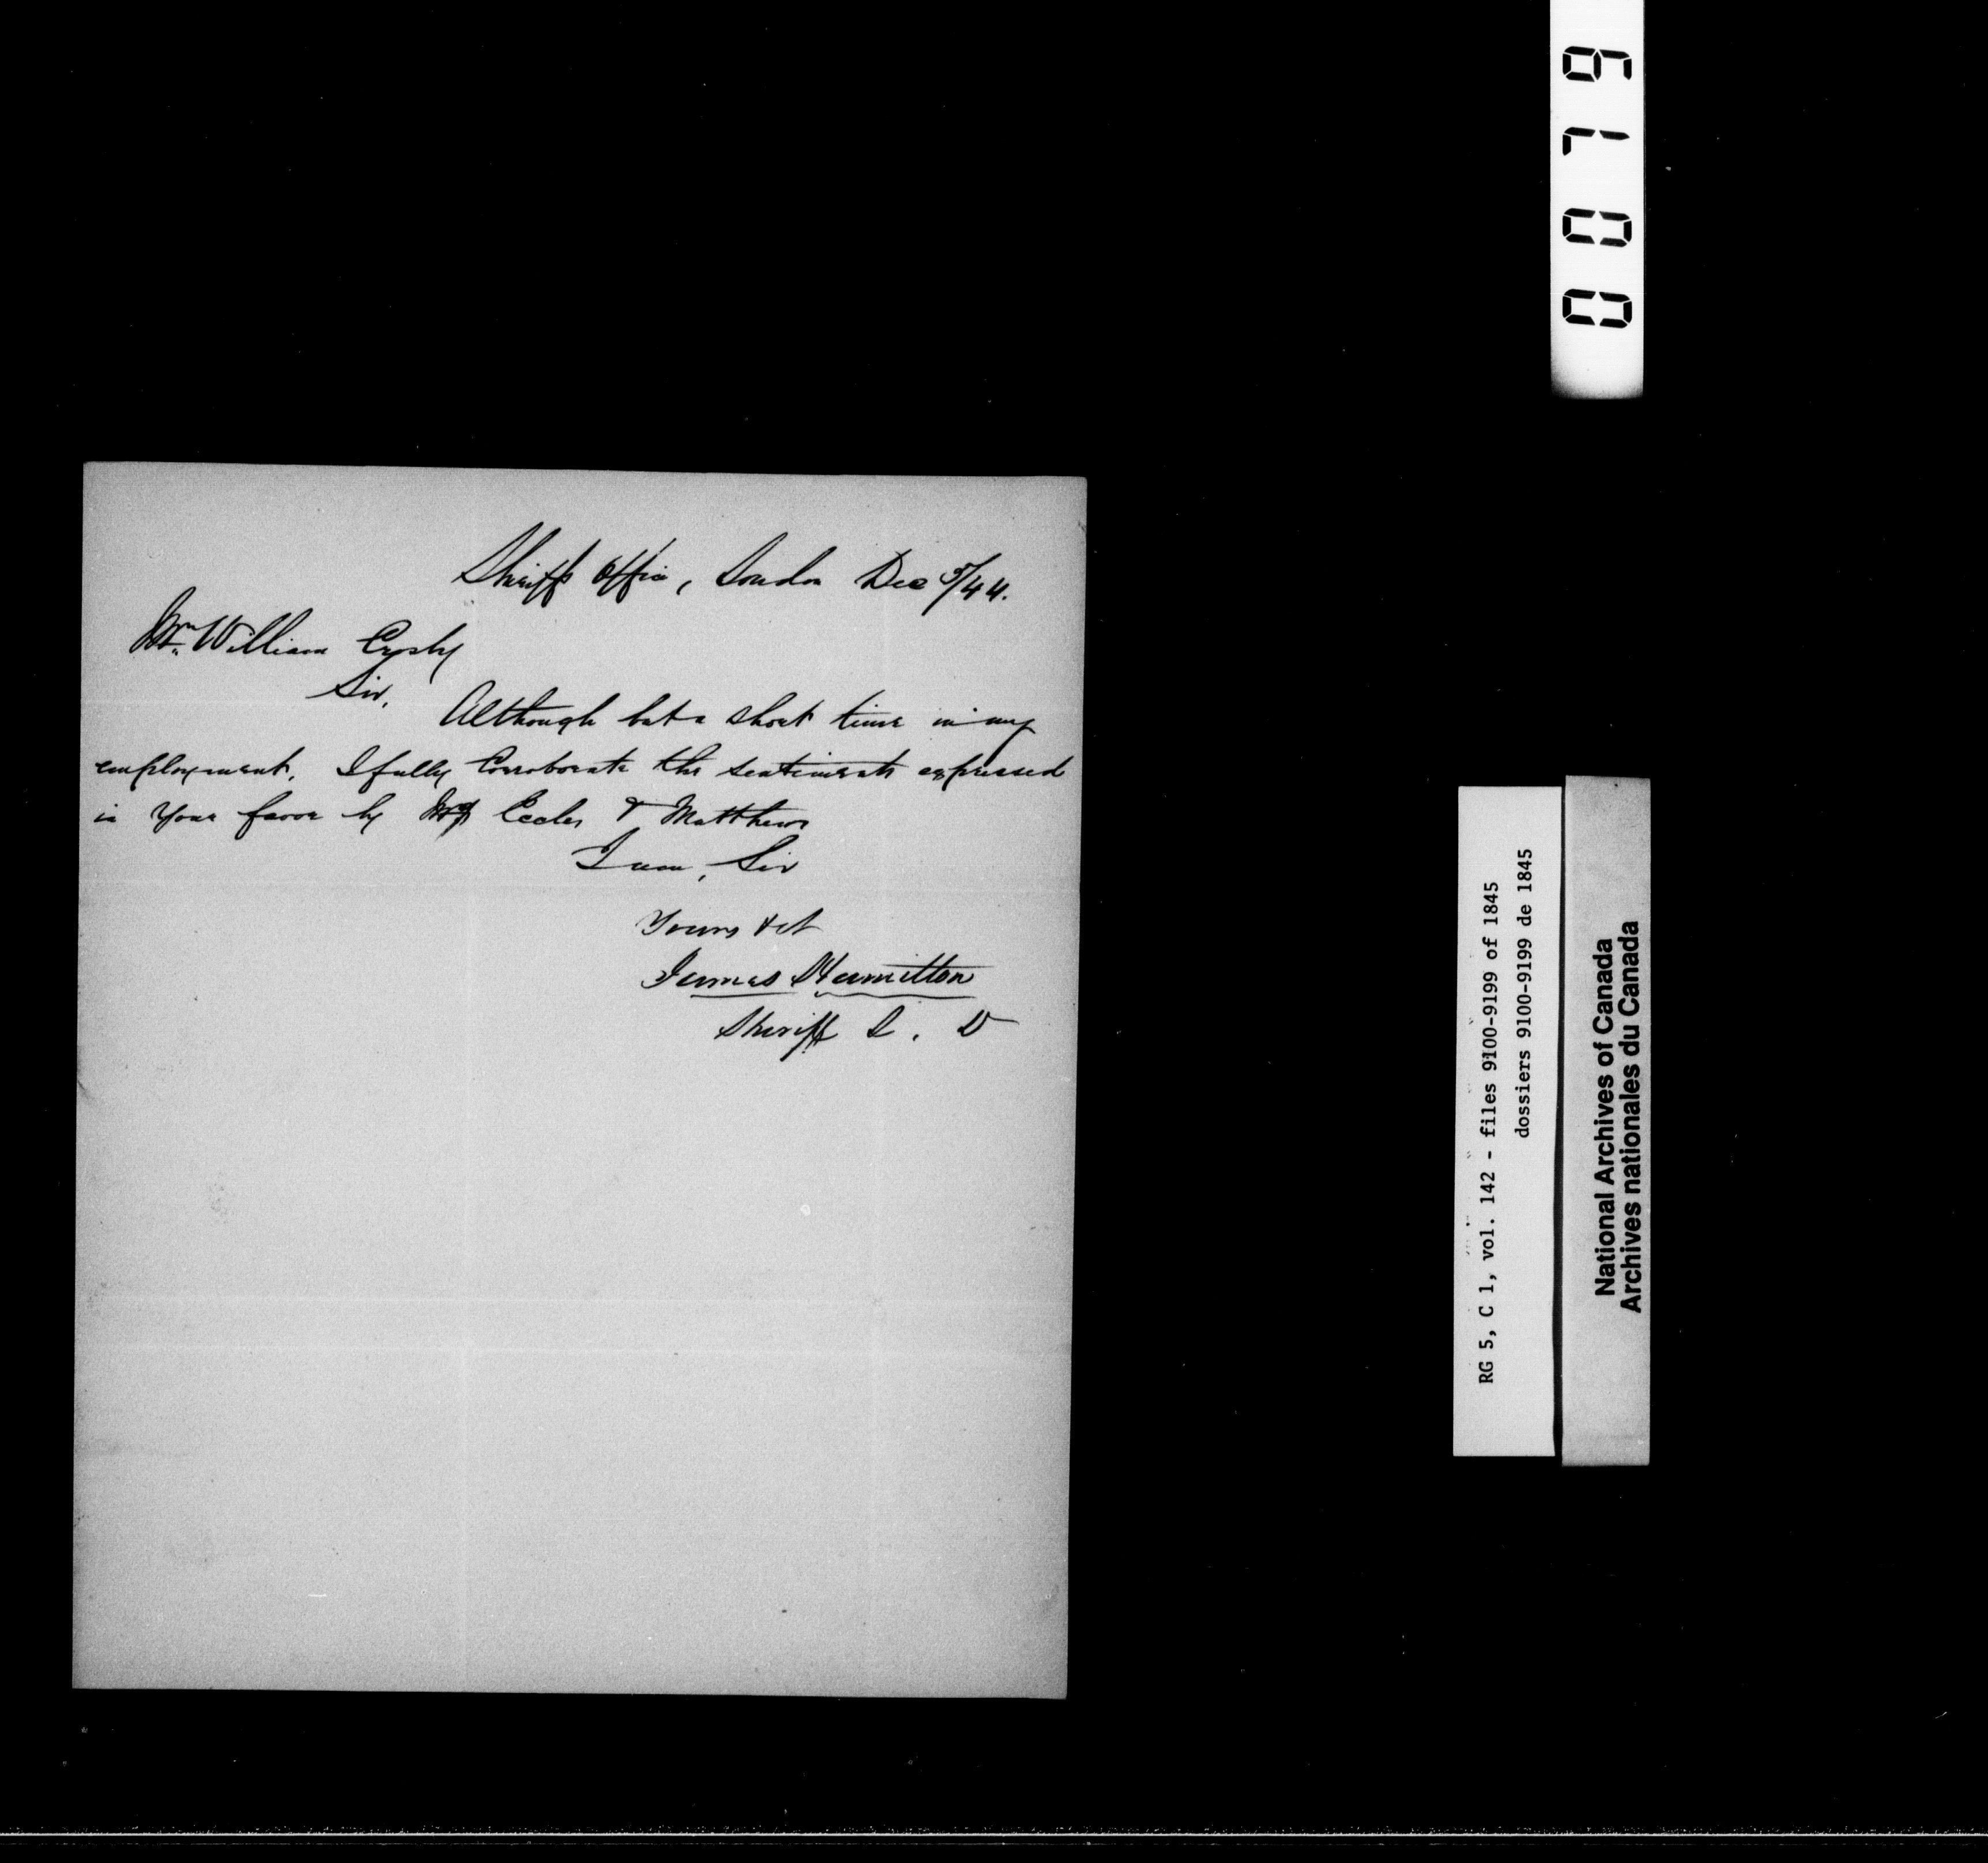 Sheriffs Office, London Dec 5/44.
Mr. William
Sir,
Although but a short time in my
employment, I fully Corroborate the sentiments expressed
in your favor by Mrs Eccles & Matthews
I am, Sir
Yours &ct
James Hamilton
Sheriff L. D
0079
RG 5, C 1, vol. 142 - files 9100-9199 of 1845
dossiers 9100-9199 de 1845
National Archives of Canada
Archives nationales du Canada